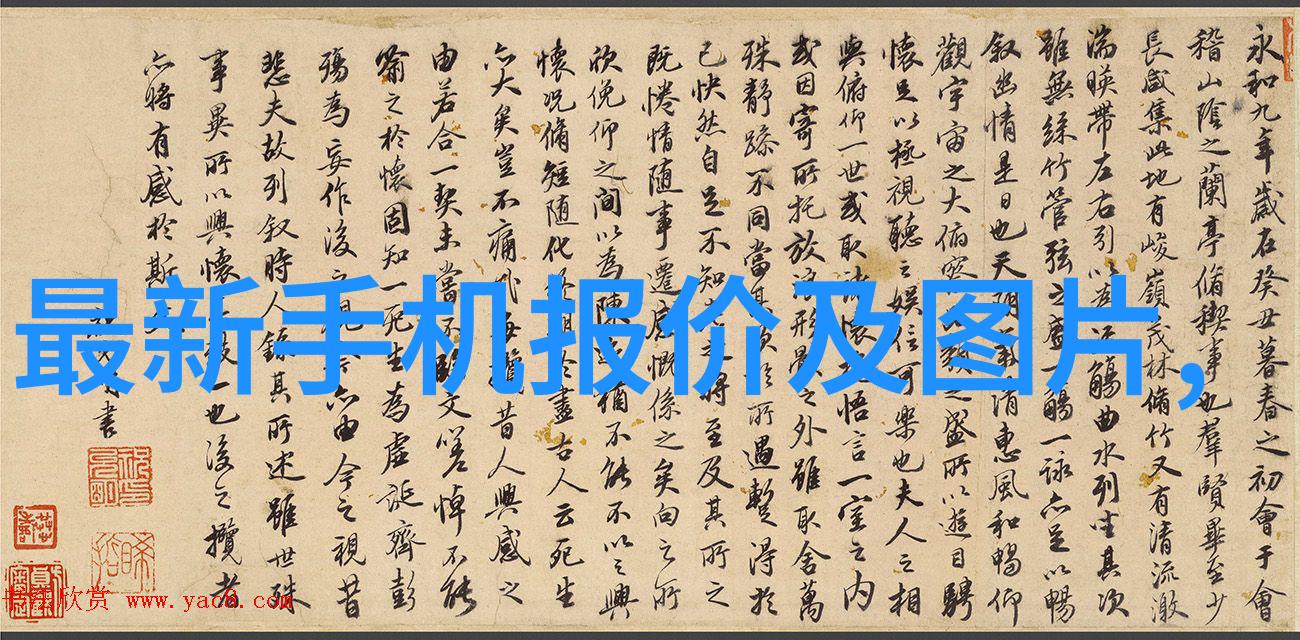 永和九年歲在癸丑暮春之初會于會
稽山陰之蘭亭脩稧事也羣賢畢至少
長咸集此地有峻嶺茂林脩竹又有清流激
湍暎帶左右引以為觴曲水列坐其次
雖無絲竹管弦之盛一觴一詠亦足以暢
叙幽情是日也天朗氣清惠風和暢仰
觀宇宙之大俯察類之盛所以遊目騁
懷足以極視聽之娛信可樂也夫人之相
與俯仰一世或取諸懷悟言一室之內
或因寄所托放浪形骸之外雖取舍萬
殊靜躁不同當其於所遇暫得於
己快然自足不知之將至及其所之
既惓情隨事遷感慨係之矣向之所
欣俛仰之間以為陳迹猶不能不以之興
懷況脩短隨化期於盡古人云死生
亦大矣豈不痛哉每攬昔人興感之
由若合一契未嘗不臨文嗟悼不能
喻之於懷固知一死生為虛誕齊彭
殤為妄作後之視今亦由今之視昔
悲夫故列叙時人錄其所述雖世殊
事異所以興懷致一也後之攬者
亦將有感於斯
書
最新手机报价及图片,
书法欣赏 www.yac8.com